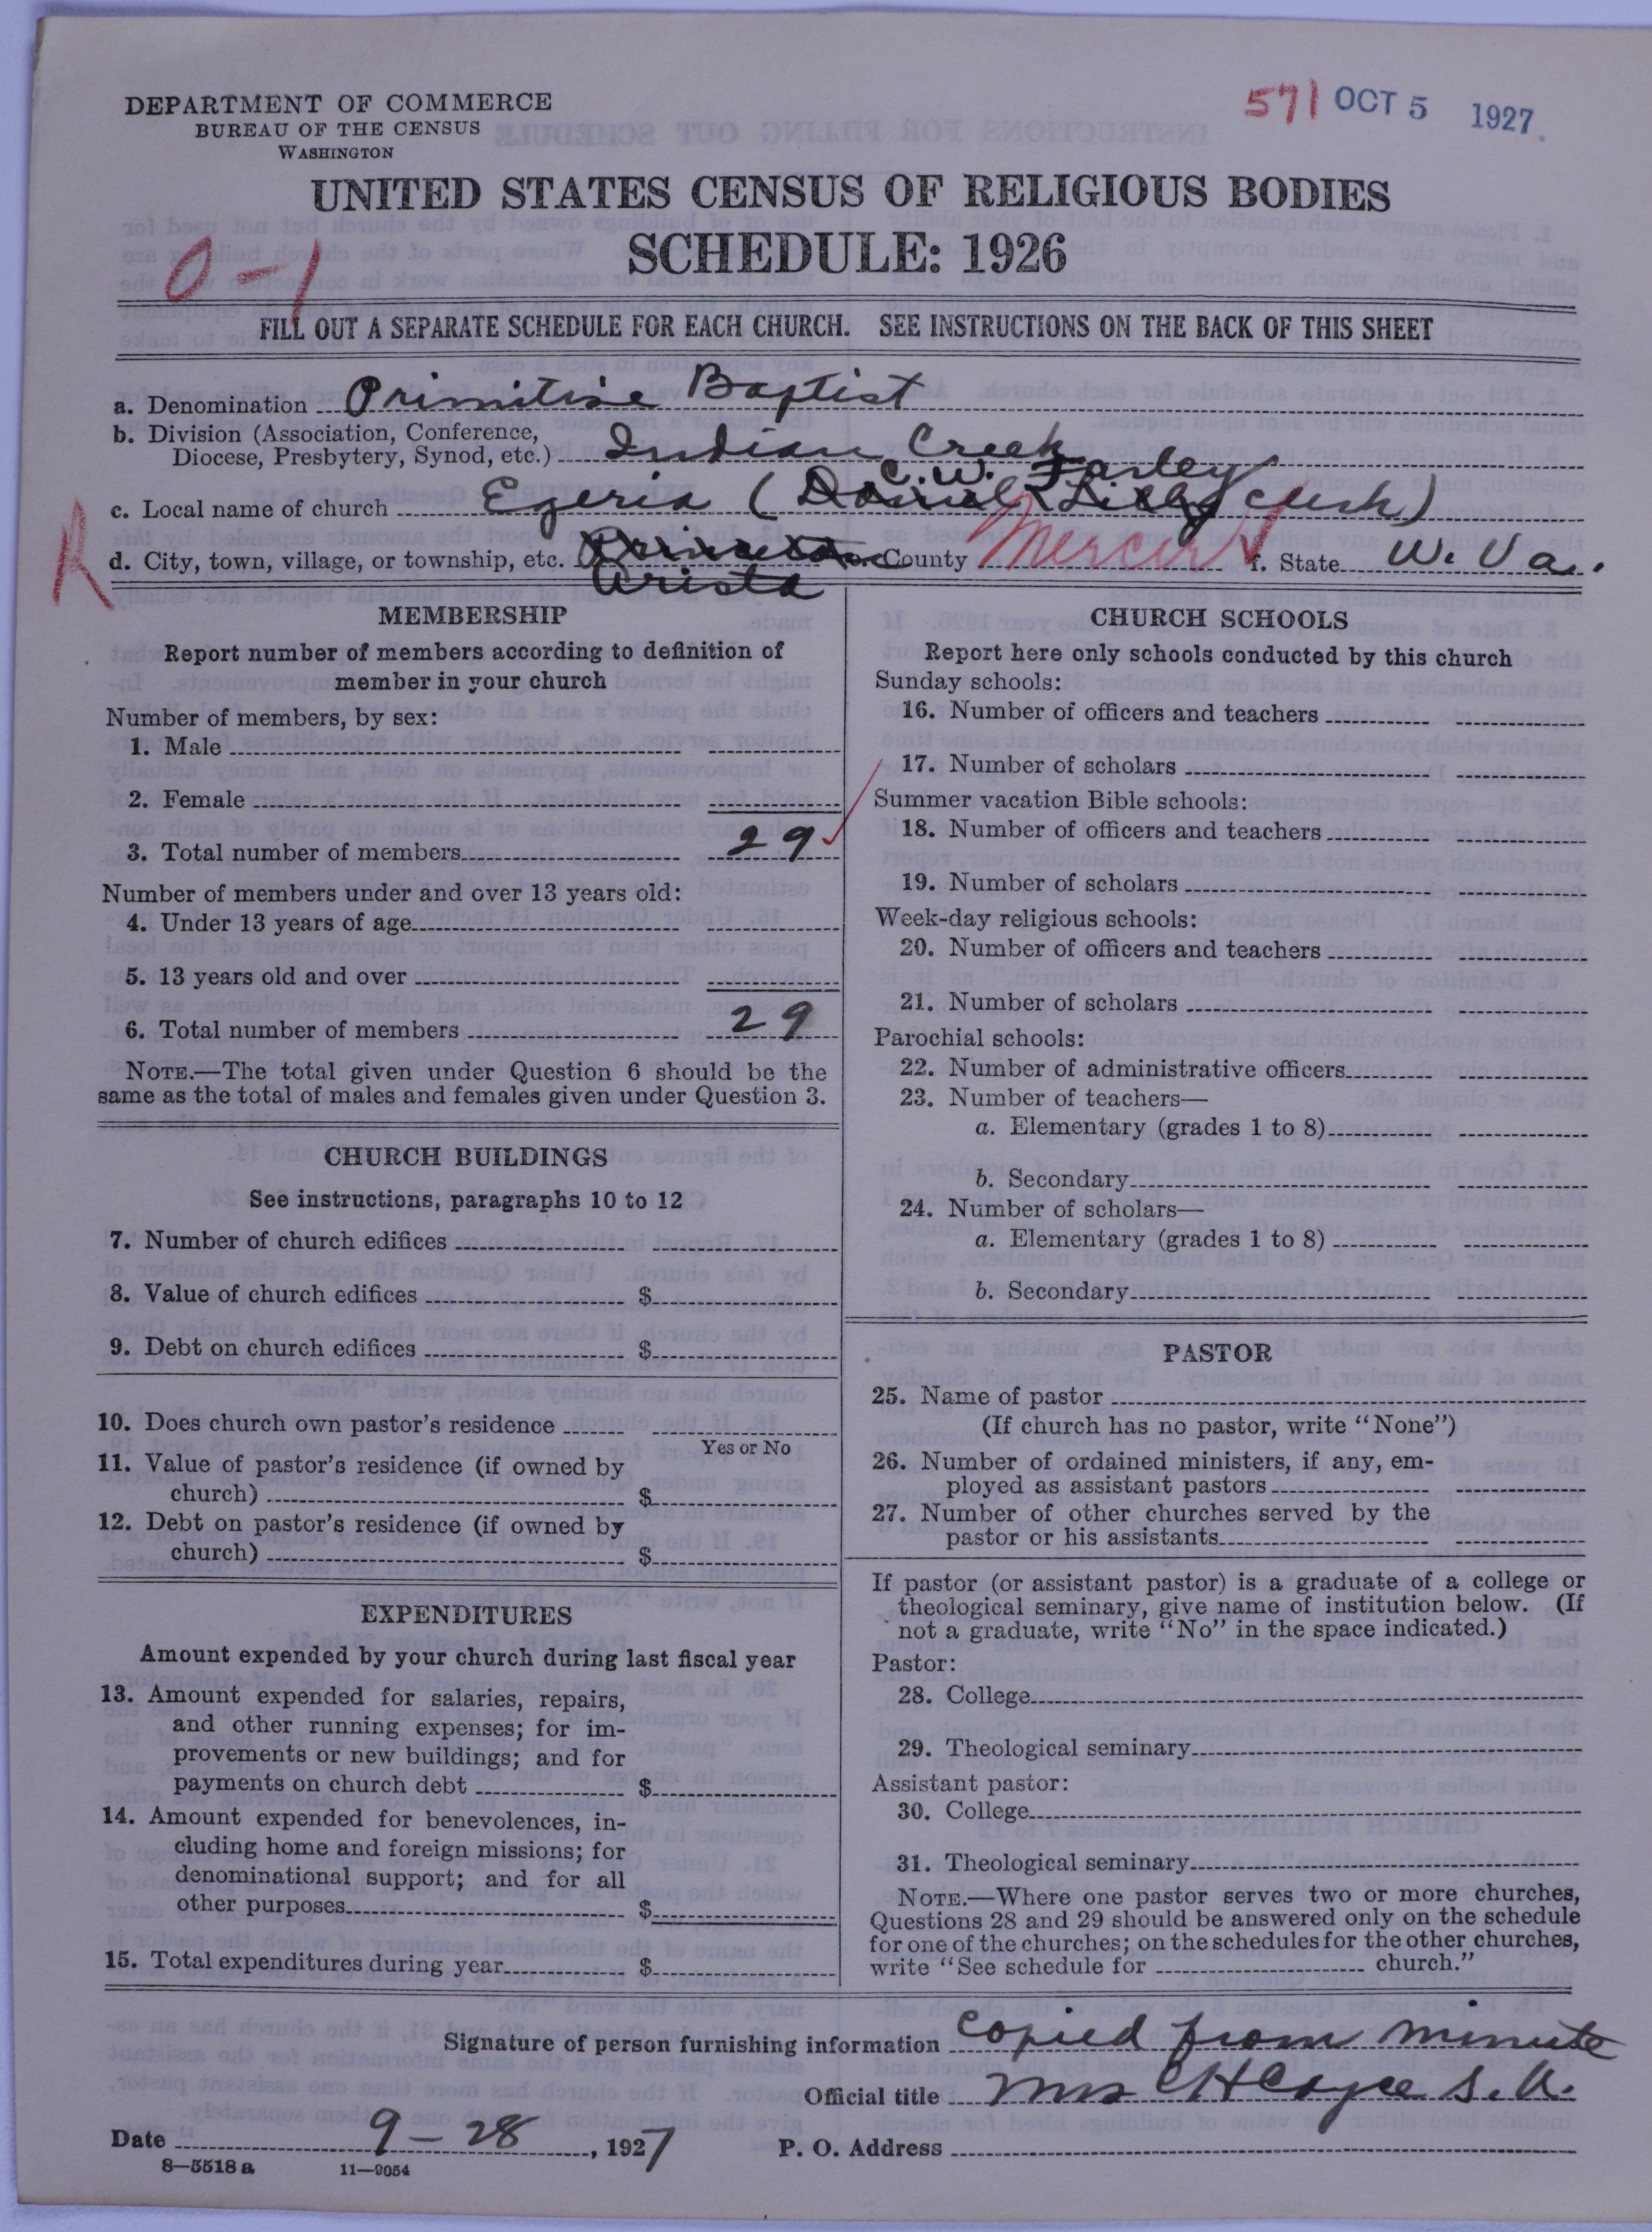 DEPARTMENT OF COMMERCE
BUREAU OF THE CENSUS
WASHINGTON
571 OCT 5 1927.
UNITED STATES CENSUS OF RELIGIOUS BODIES
SCHEDULE: 1926
0-1
FILL OUT A SEPARATE SCHEDULE FOR EACH CHURCH. SEE INSTRUCTIONS ON THE BACK OF THIS SHEET
a. Denomination Primitive Baptist
b. Division (Association, Conference, Diocese, Presbytery, Synod, etc.) Indian Creek
C.W. Farley
c. Local name of church Egeria (Daniel Lilly clerk)
d. City, town, village, or township, etc. Princeton County Mercer f. State W. Va.
Arista
K
MEMBERSHIP
Report number of members according to definition of
member in your church
Number of members, by sex:
1. Male
2. Female
3. Total number of members 29
Number of members under and over 13 years old:
4. Under 13 years of age
5. 13 years old and over
6. Total number of members 29
NOTE.—The total given under Question 6 should be the
same as the total of males and females given under Question 3.
CHURCH BUILDINGS
See instructions, paragraphs 10 to 12
7. Number of church edifices
8. Value of church edifices $
9. Debt on church edifices $
10. Does church own pastor's residence
Yes or No
11. Value of pastor's residence (if owned by
church) $
12. Debt on pastor's residence (if owned by
church) $
EXPENDITURES
Amount expended by your church during last fiscal year
13. Amount expended for salaries, repairs,
and other running expenses; for im-
provements or new buildings; and for
payments on church debt $
14. Amount expended for benevolences, in-
cluding home and foreign missions; for
denominational support; and for all
other purposes $
15. Total expenditures during year $
CHURCH SCHOOLS
Report here only schools conducted by this church
Sunday schools:
16. Number of officers and teachers
17. Number of scholars
Summer vacation Bible schools:
18. Number of officers and teachers
19. Number of scholars
Week-day religious schools:
20. Number of officers and teachers
21. Number of scholars
Parochial schools:
22. Number of administrative officers
23. Number of teachers—
a. Elementary (grades 1 to 8)
b. Secondary
24. Number of scholars—
a. Elementary (grades 1 to 8)
b. Secondary
PASTOR
25. Name of pastor
(If church has no pastor, write "None")
26. Number of ordained ministers, if any, em-
ployed as assistant pastors
27. Number of other churches served by the
pastor or his assistants
If pastor (or assistant pastor) is a graduate of a college or
theological seminary, give name of institution below. (If
not a graduate, write "No" in the space indicated.)
Pastor:
28. College
29. Theological seminary
Assistant pastor:
30. College
31. Theological seminary
NOTE.—Where one pastor serves two or more churches,
Questions 28 and 29 should be answered only on the schedule
for one of the churches; on the schedules for the other churches,
write "See schedule for church."
Signature of person furnishing information copied from minute
Official title Mrs C H Cayce S. A.
Date 9-28, 1927 P. O. Address
8—5518 a 11—9054